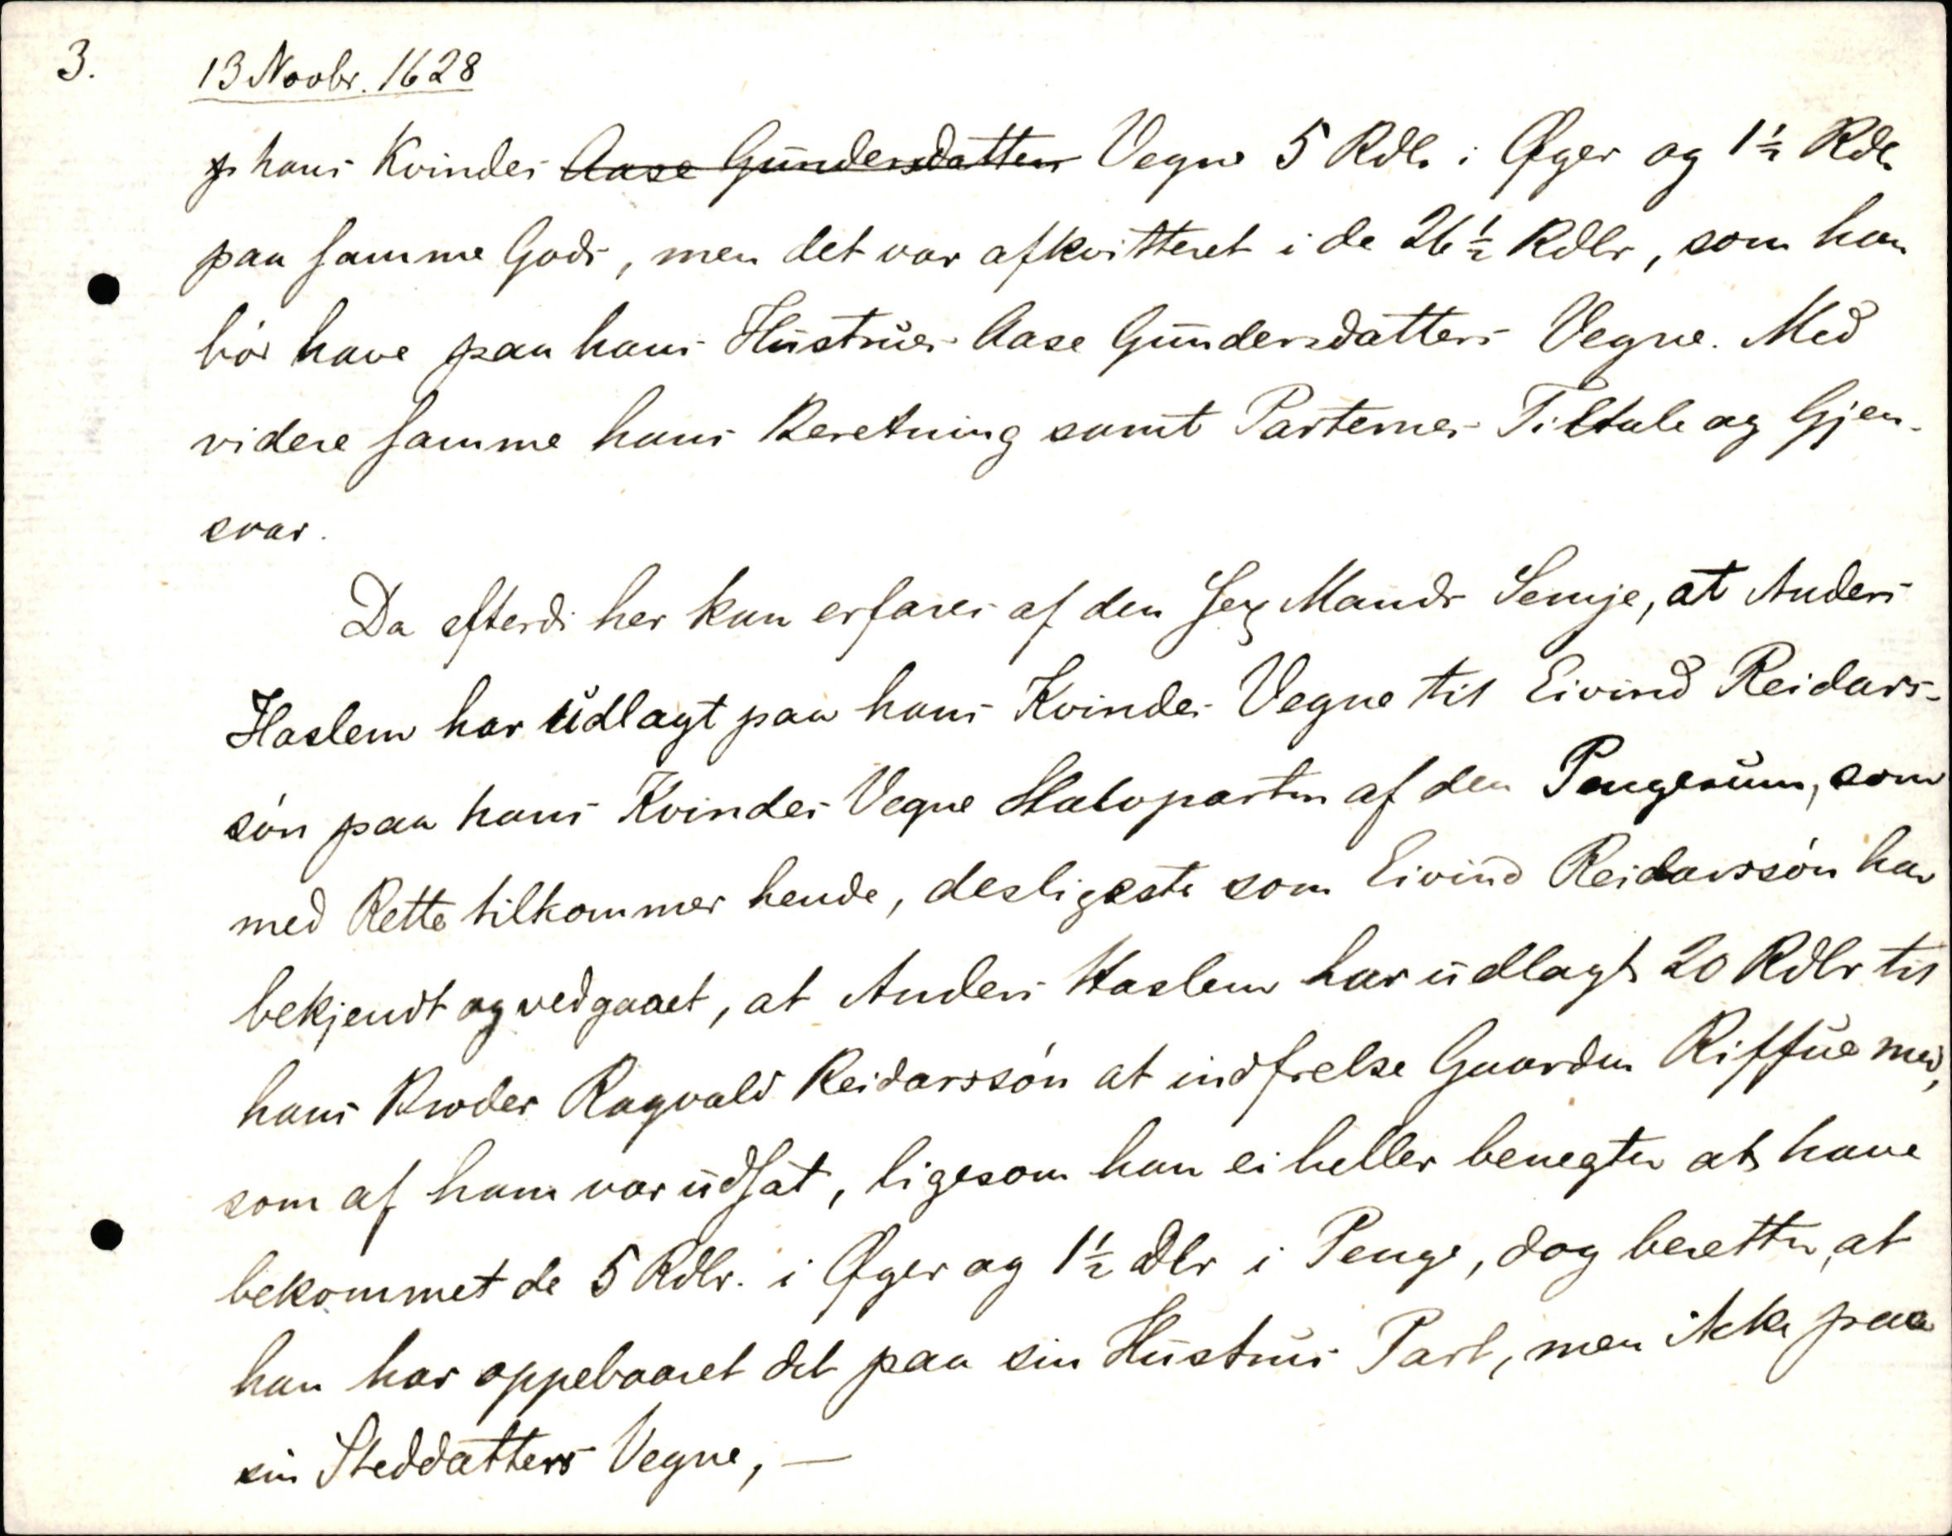 3. 13 Novbr. 1628
p. hans Kvindes Aase Gundersdatters Vegne 5 Rdlr i Øger og 1½ Rdlr
paa samme Gods, men det var afkvitteret i de 26½ Rdlr, som han
bör have paa hans Hustrues Aase Gundersdatters Vegne. Med
videre samme hans Beretning samt Parternes Tiltale og Gjen-
svar.
Da efterdi her kan erfares af den Sex Mands Semje, at Anders
Haslem har udlagt paa hans Kvindes Vegne til Eivind Reidars-
sön paa hans Kvindes Vegne Halvparten af den Pengesum, som
med Rette tilkommer hende, desligeste som Eivind Reidarssön har
bekjendt og vedgaaet, at Anders Haslem har udlagt 20 Rdlr til
hans Broder Ragvald Reidarssön at indfrelse Gaarden Riffue med,
som af ham var udsat, ligesom han ei heller benegter at have
bekommet de 5 Rdlr. i Øger og 1½ Dlr i Penge, dog beretter, at
han har oppebaaret det paa sin Hustrus Part, men ikke paa
sin Steddatters Vegne, —